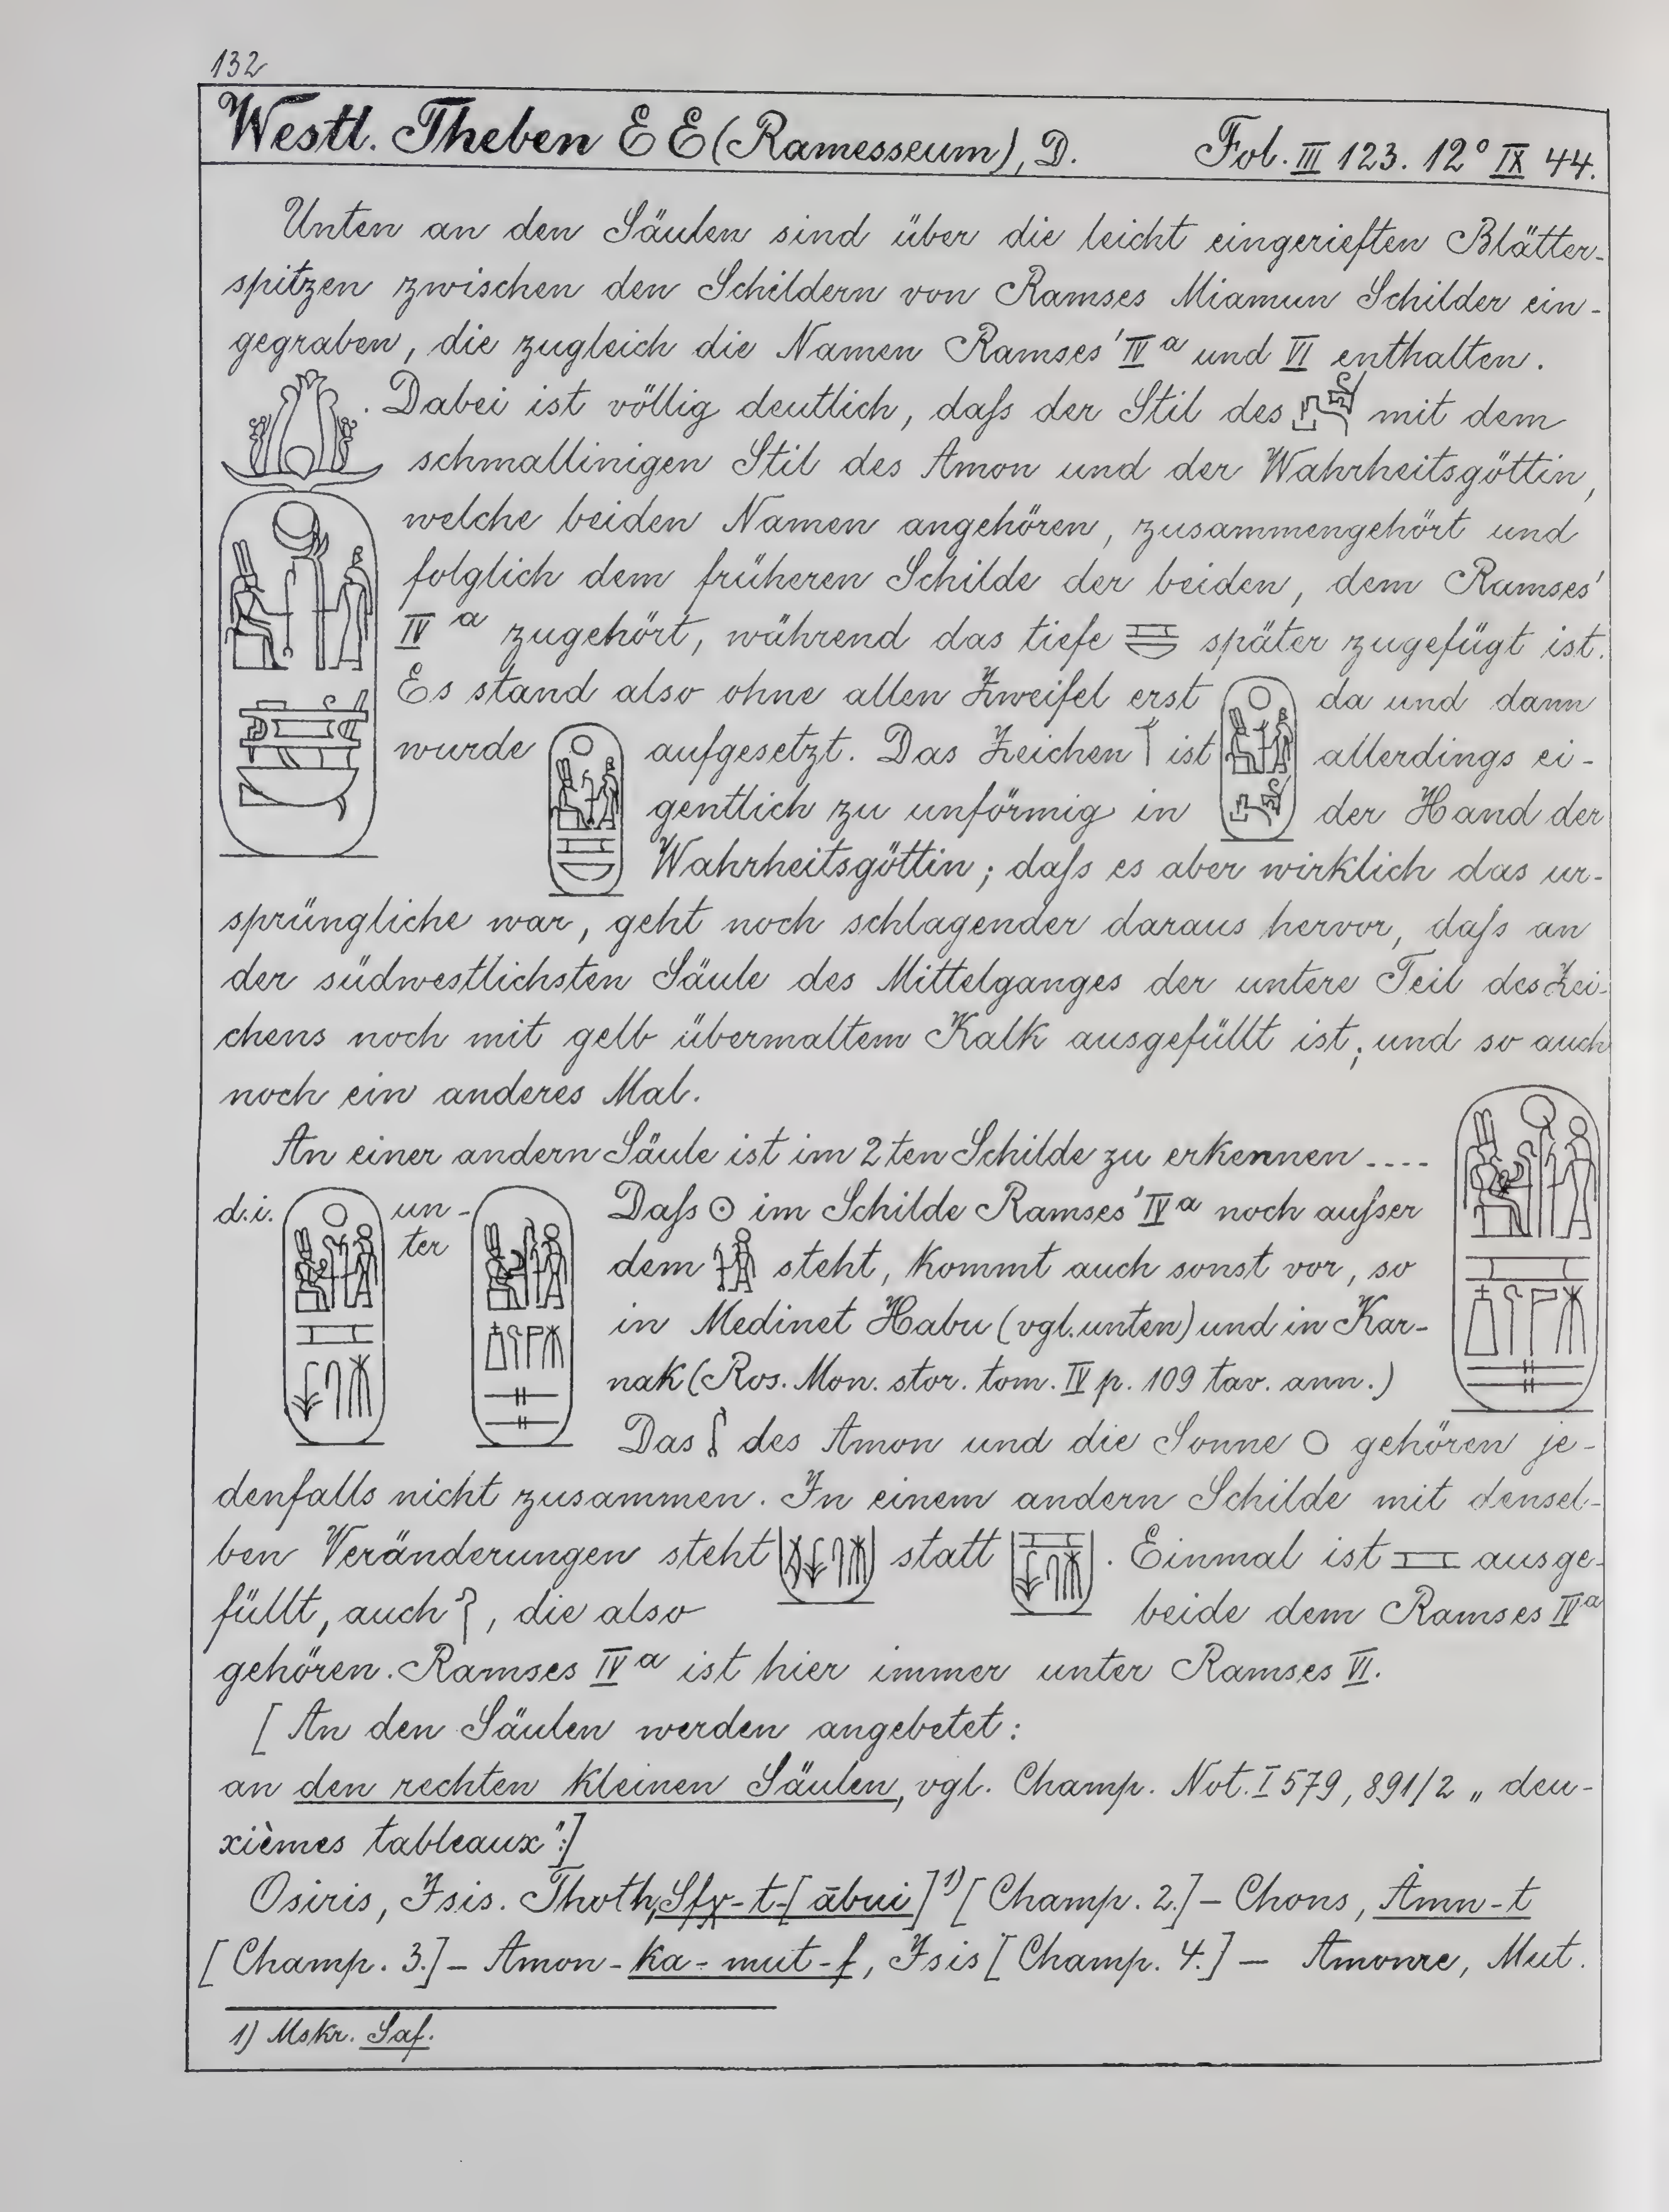 132
Westl. Theben E E (Ramesseum), D. Fol. III 123. 12° IX 44.
Unten an den Säulen sind über die leicht eingerieften Blätter-
spitzen zwischen den Schildern von Ramses Miamun Schilder ein-
gegraben, die zugleich die Namen Ramses' IVa und VI enthalten.
. Dabei ist völlig deutlich, daſs der Stil des mit dem
schmallinigen Stil des Amon und der Wahrheitsgöttin,
welche beiden Namen angehören, zusammengehört und
folglich dem früheren Schilde der beiden, dem Ramses'
IVa zugehört, während das tiefe später zugefügt ist.
Es stand also ohne allen Zweifel erst da und dann
wurde aufgesetzt. Das Zeichen ist allerdings ei-
gentlich zu unförmig in der Hand der
Wahrheitsgöttin; daſs es aber wirklich das ur-
sprüngliche war, geht noch schlagender daraus hervor, daſs an
der südwestlichsten Säule des Mittelganges der untere Teil des Zei-
chens noch mit gelb übermaltem Kalk ausgefüllt ist; und so auch
noch ein anderes Mal.
An einer andern Säule ist im 2ten Schilde zu erkennen ....
d.i. un-
ter
Daſs ☉ im Schilde Ramses' IVa noch auſser
dem steht, kommt auch sonst vor, so
in Medinet Habu (vgl. unten) und in Kar-
nak (Ros. Mon. stor. tom. IV p. 109 tav. ann.)
Das des Amon und die Sonne ○ gehören je-
denfalls nicht zusammen. In einem andern Schilde mit densel-
ben Veränderungen steht statt . Einmal ist ausge-
füllt, auch , die also beide dem Ramses IVa
gehören. Ramses IVa ist hier immer unter Ramses VI.
[An den Säulen werden angebetet:
an den rechten kleinen Säulen, vgl. Champ. Not. I 579, 891/2 „deu-
xièmes tableaux":]
Osiris, Isis. Thoth, Sfχ-t-[ābui]¹) [Champ. 2.] – Chons, Åmn-t
[Champ. 3.] – Amon-ka-mut-f, Isis [Champ. 4.] – Amonre, Mut.
1) Mskr. Saf.